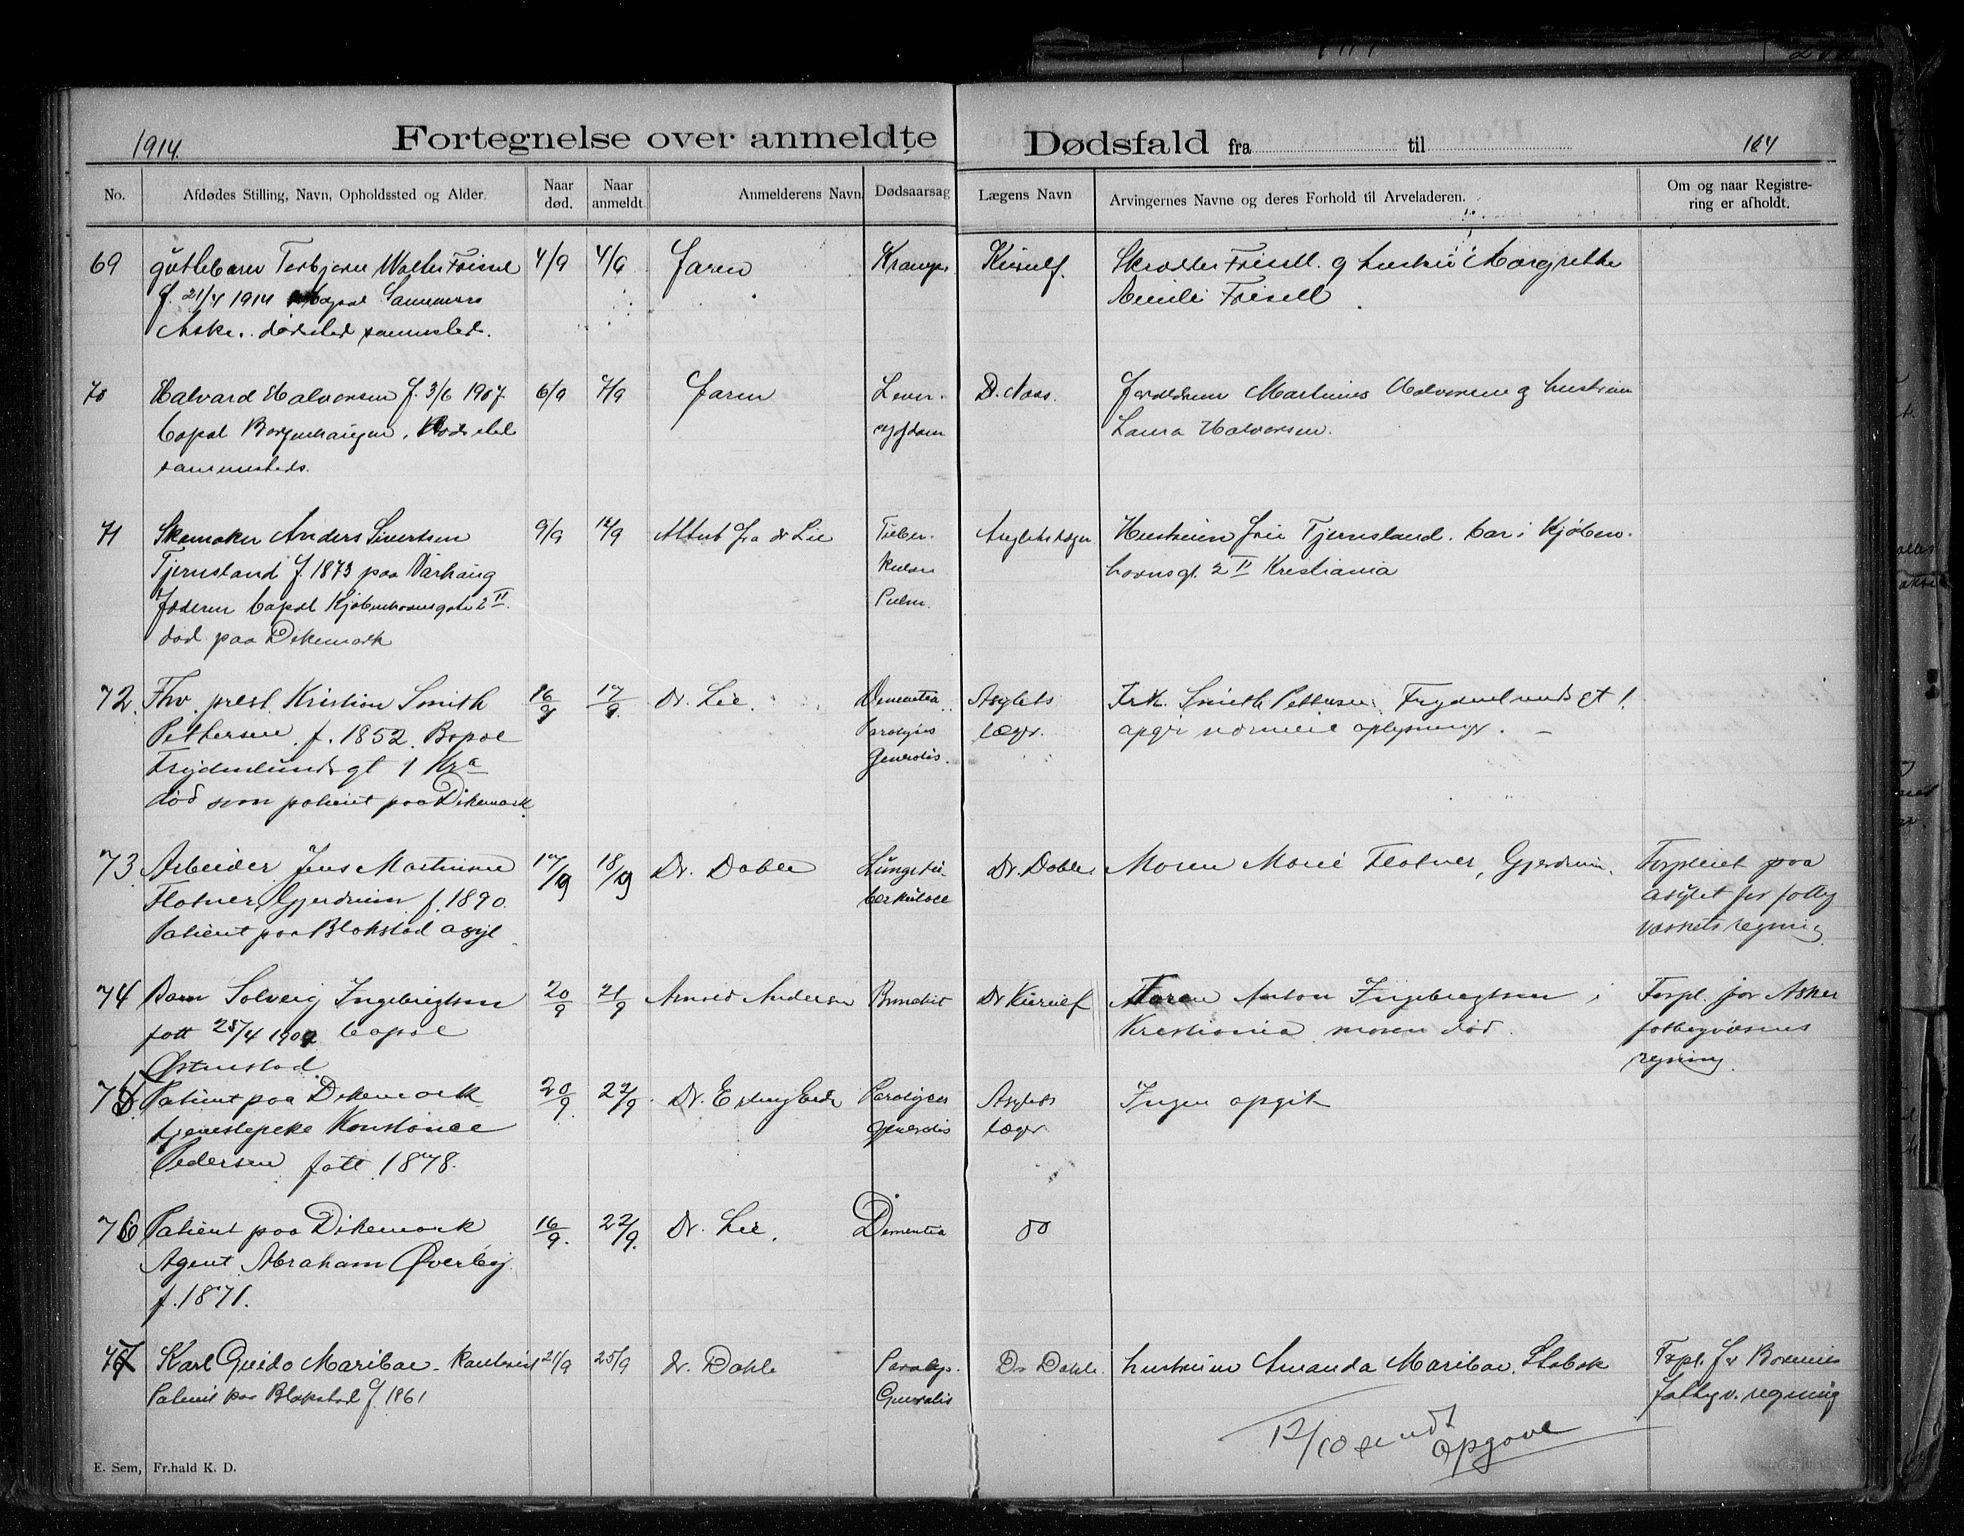 1914.
Fortegnelse over anmeldte Dødsfald fra til
164
No.
Afdødes Stilling, Navn, Opholdssted og Alder.
Naar død.
Naar anmeldt.
Anmelderens Navn
Dødsaarsag
Lægens Navn
Arvingernes Navne og deres Forhold til Arveladeren.
Om og naar Registre-
ring er afholdt.
69
guttebarn Torbjørn Walter Frisell
f. 21/4 1914 bopæl
Asker. dødssted sammesteds.
4/9
4/9
Faren
Kramper
Kierulf.
Skrædder Frisell. og hustru Margrethe
Emilie Frisell
70
Halvard Halvorsen f. 3/6 1907
bopæl Borgenhaugen. Dødssted
sammesteds.
6/9
7/9
Faren
Lever-
sygdom
D. Naas.
forældrene Martinius Halvorsen og hustru
Laura Halvorsen.
71
Skomaker Anders Sivertsen
Tjernsland f. 1873 paa Varhaug
Jæderen bopæl Kjøbenhavnsgate 2 II.
død paa Dikemark
9/9
12/9
Attest fra dr Lie
Tuber-
kulose
Pulm.
Asylets læge
Hustruen fru Tjernsland. bor i Kjøben-
havnsgt. 2 II Kristiania
72.
Fhv. prest Kristian Smith
Pettersen. f. 1852. Bopæl
Frydenlunds gt 1 Kra
død som patient paa Dikemark
16/9
17/9.
Dr. Lie.
Dementia
Paralyses
Generalis.
Asylets
læge.
Frk. Smith Pettersen, Frydenlunds gt 1.
opgir nærmere oplysninger. –
73.
Arbeider Jens Martinsen
Flatner, Gjerdrum f. 1890.
Patient paa Blakstad asyl
17/9
18/9
Dr. Dahle
Lungetu-
berkulose
Dr. Dahle
Moren Marie Flatner, Gjerdrum.
Forpleiet paa
asylet for fattig
væsnets regning
74
Barn Solveig Ingebrigtsen
født 25/4 1902 bopæl
Østenstad.
20/9
21/9
Arnold Andersen
Bronchit
Dr Kierulf
Faren Anton Ingebrigtsen i
Kristiania moren død.
Forpl. for Asker
fattigvæsens
regning.
75
Patient paa Dikemark
tjenestepike Konstance
Pedersen født 1878.
20/9
22/9.
Dr. Evensen
Paralyses
generalis
Asylets
læge.
Ingen opgit
76
Patient paa Dikemark
Agent Abraham Øverby
f. 1871.
16/9.
22/9.
Dr. Lie.
Dementia
do
77
Karl Guido Mariboe
Patient paa Blakstad f. 1861
21/9
25/9
dr. Dahle
Paralys.
Generalis
Dr Dahle.
hustruen Amanda Mariboe. Stabek
Forpl. for Bærums
fattigv. regning
12/10 sendt
opgave
E. Sem, Fr.hald K. D.